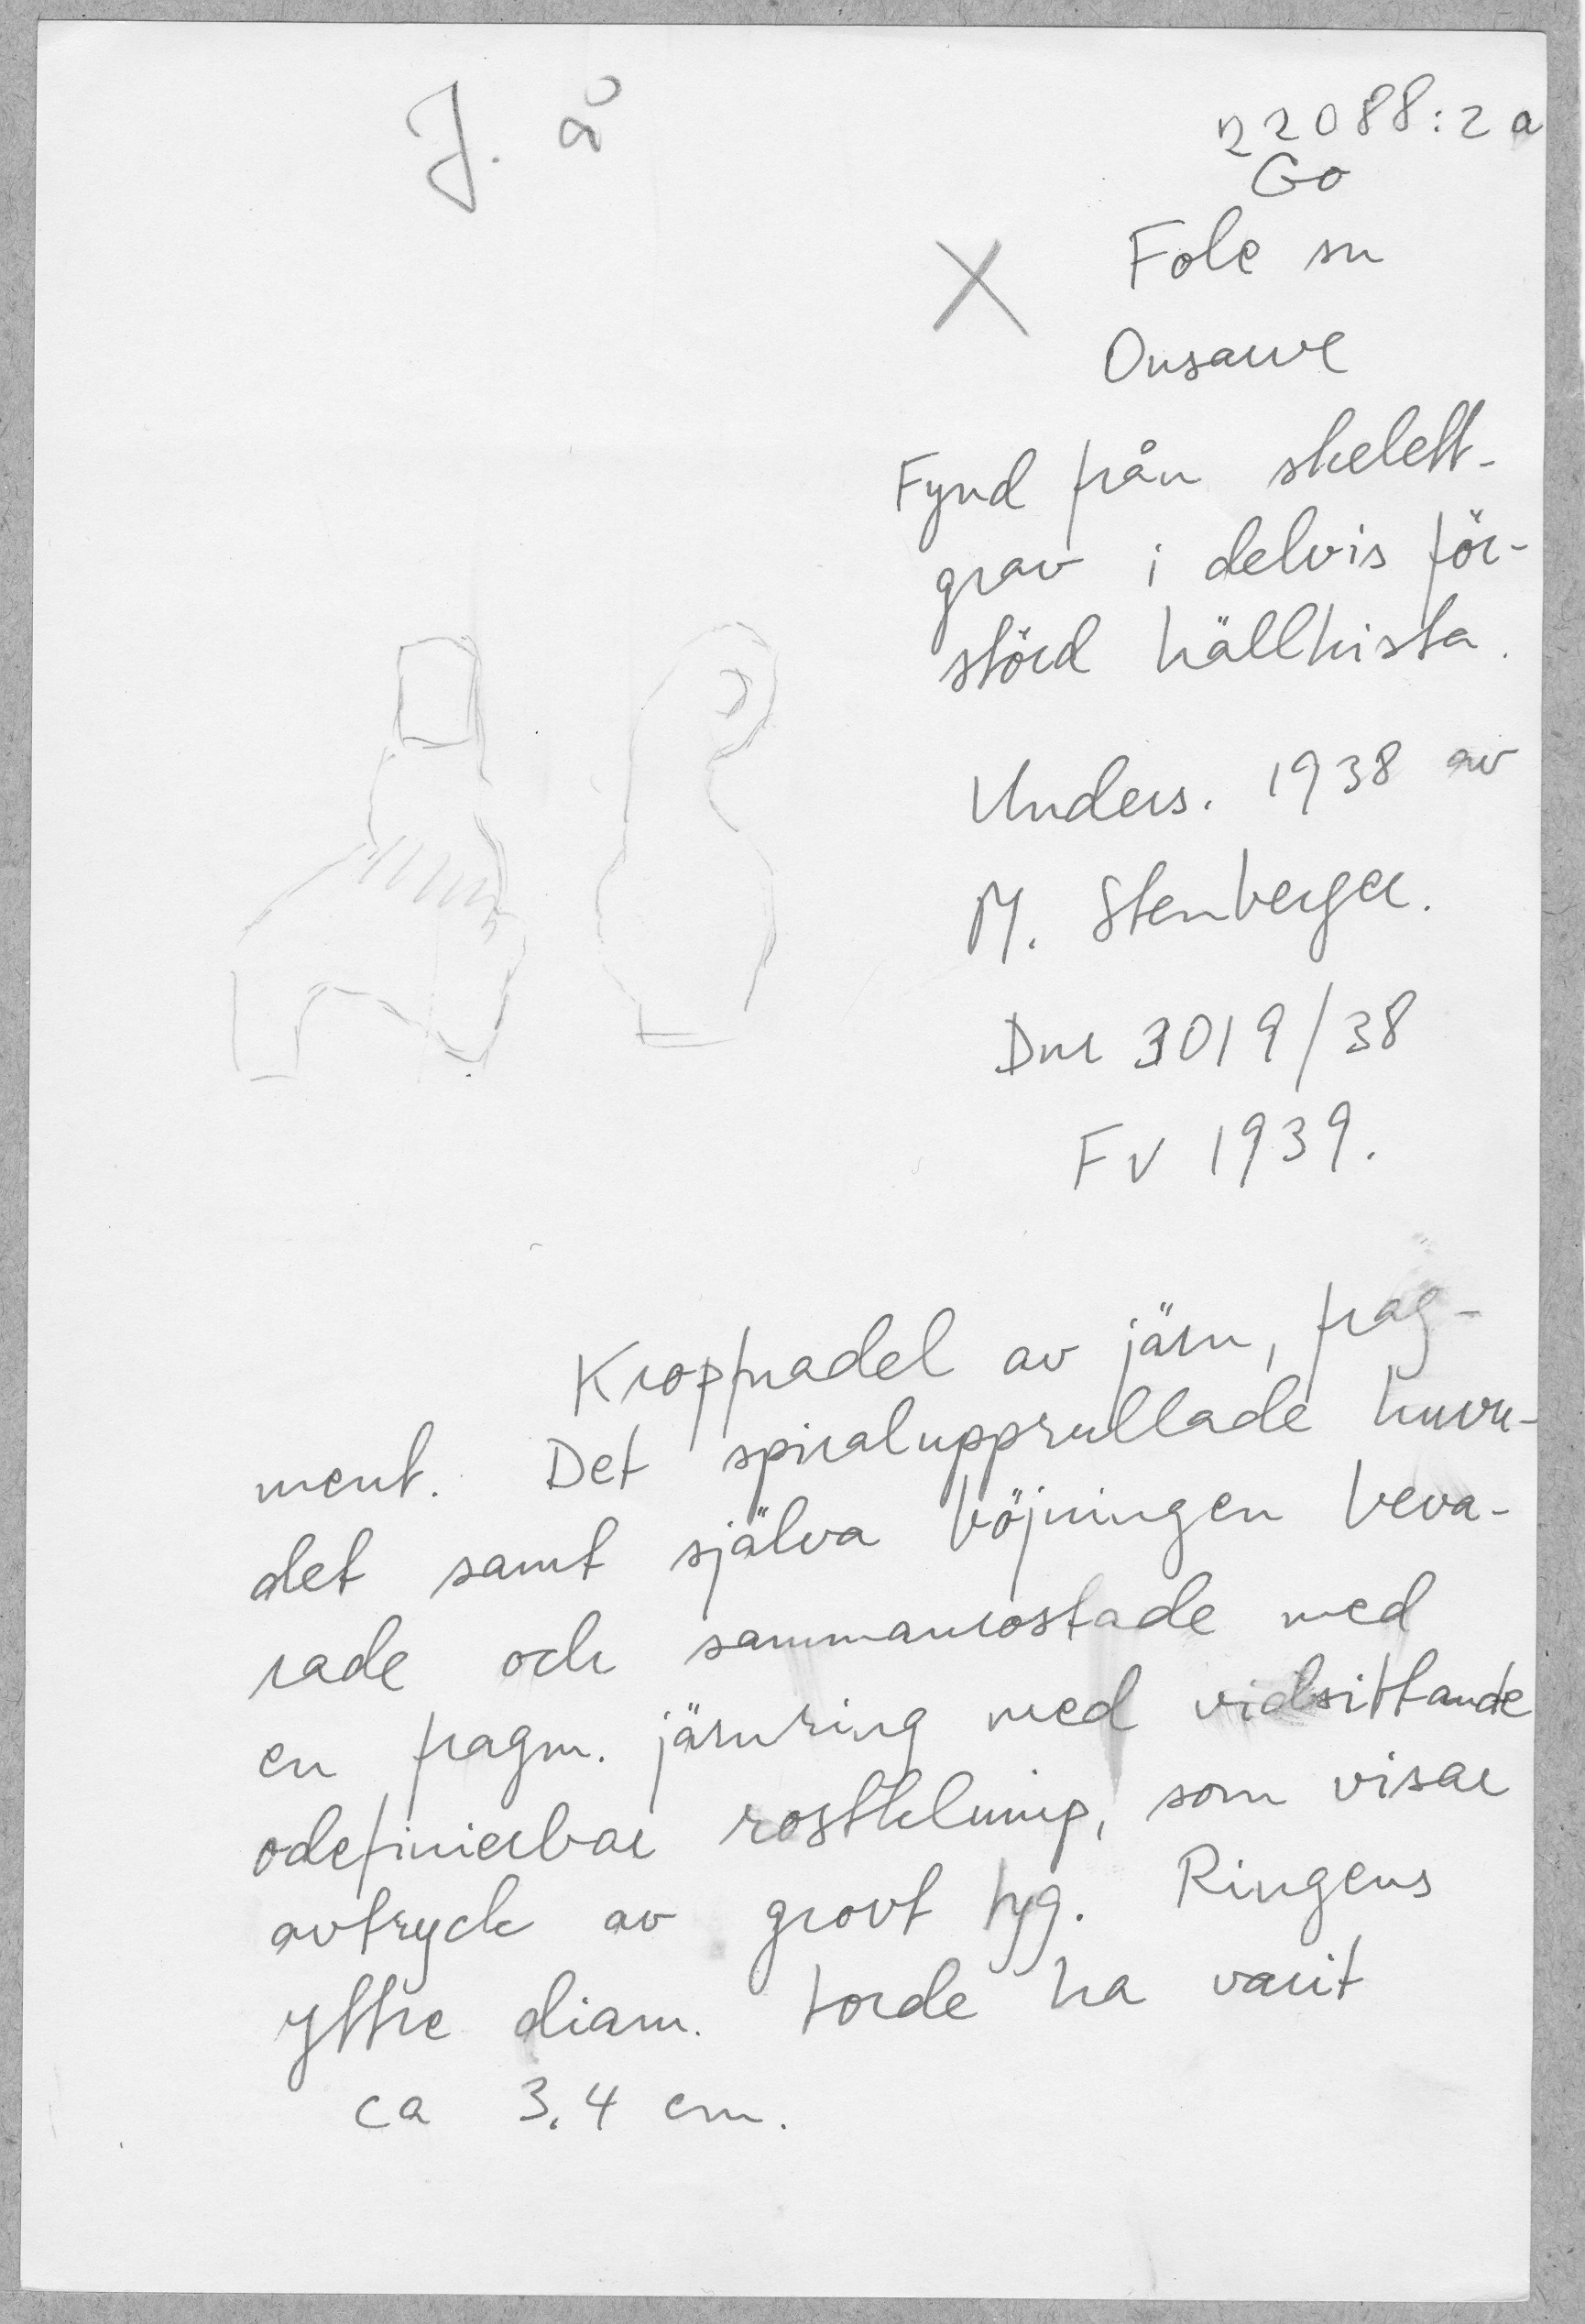 J. å
22088:2a
Go
X Fole sn
Onsarve
Fynd från skelett-
grav i delvis för-
störd hällkista.
Unders. 1938 av
M. Stenberger.
Dnr 3019/38
FV 1939.
Kroppnadel av järn, frag-
ment. Det spiralupprullade huvu-
det samt själva böjningen beva-
rade och sammanrostade med
en fragm. järnring med vidsittande
odefinierbar rostklump, som visar
avtryck av grovt tyg. Ringens
yttre diam. torde ha varit
ca 3.4 cm.